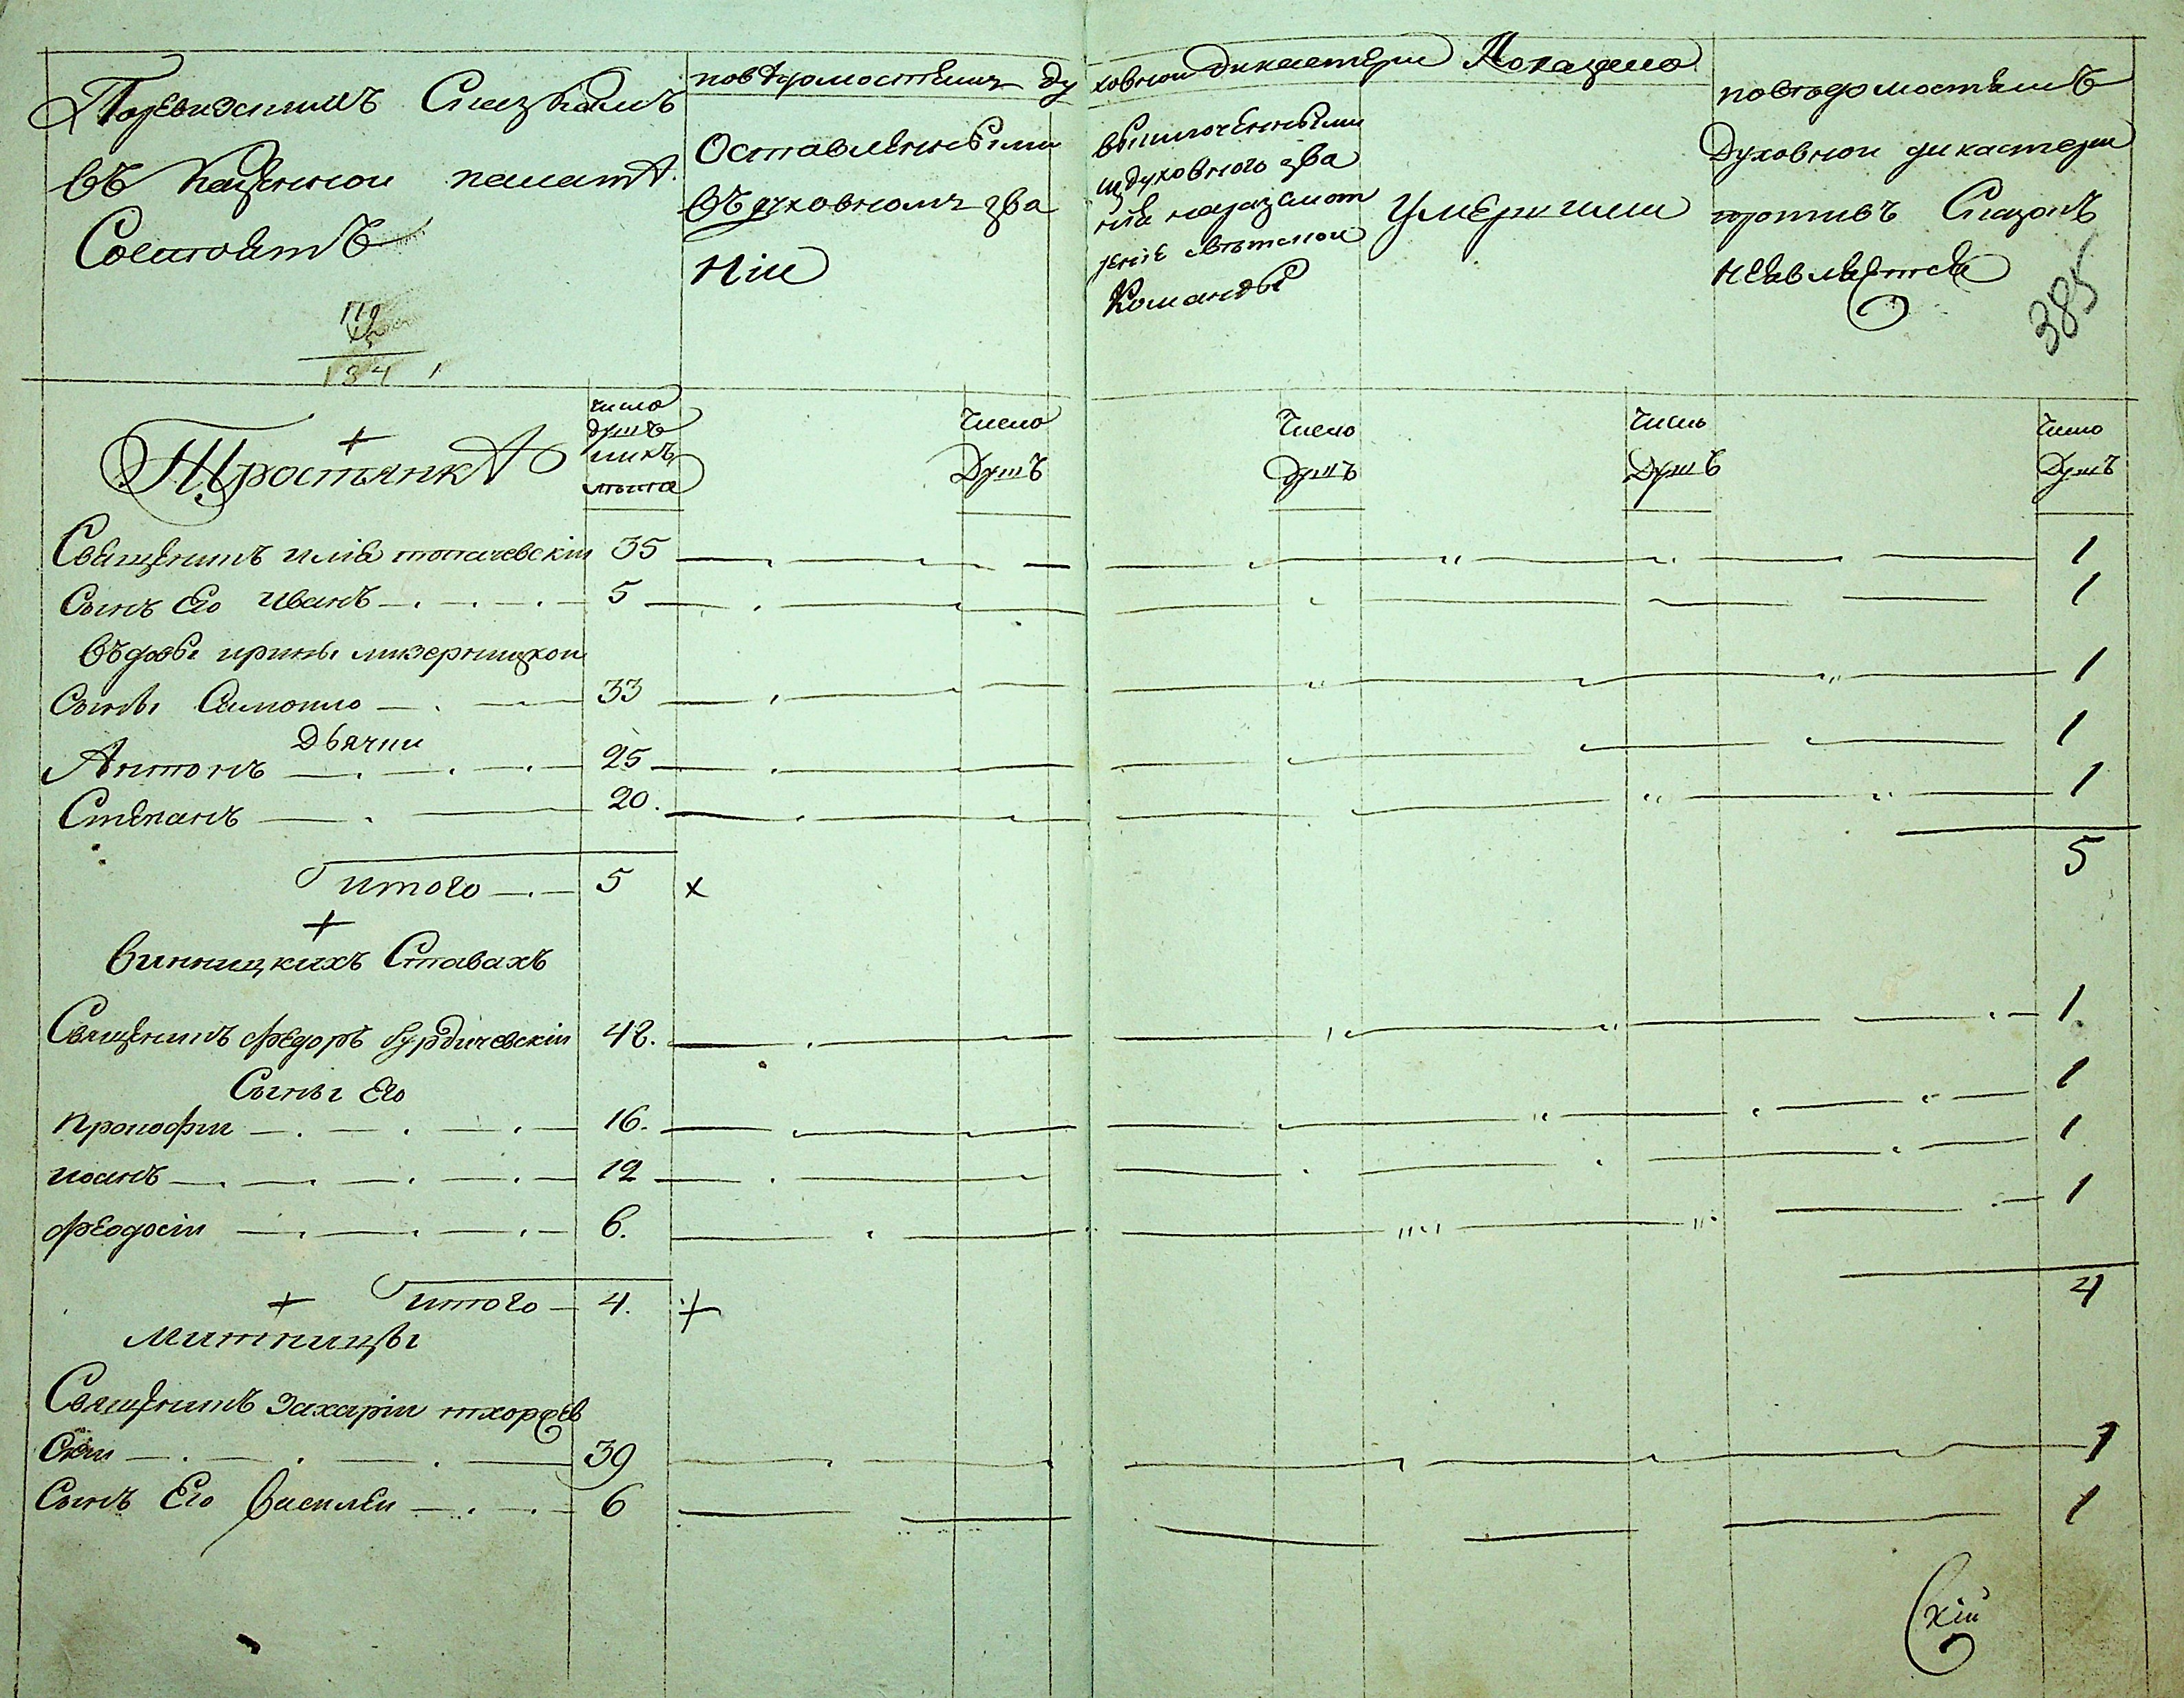 Поревизскимъ Сказкамъ
въ казенной палатѣ
Состоятъ
повѣдомостямъ духовной дикастери Показано
Оставленными
въ духовномъ зва
ніи
выключенными
издуховного зва
нія
Команды
Умершими
повѣдомостямъ
Духовной дикастери
противъ Сказокъ
неявляется
385
184
Тростянкѣ
число
душъ
Число
Душъ
Число
Душъ
Число
Душъ
Число
Душъ
Священикъ илія топачевскій 35 1
Сынъ Его Иванъ 5 1
Въдовы ирины мизерницкой
Сынъ Самоило 33 1
Дьячки
Антонъ 25 1
Степанъ 20. 1
итого 5 х 5
Винницкихъ Ставахъ
Священикъ Федоръ бурдичевскій 42. 1
Сыны Его
Прокофии 16. 1
иоанъ 12 1
Феодосіи 6. 1
итого 4. 4
митницы
Священикъ Захаріи тхоржев
Скіи 39 1
Сынъ Его Василеи 6 1
хіи